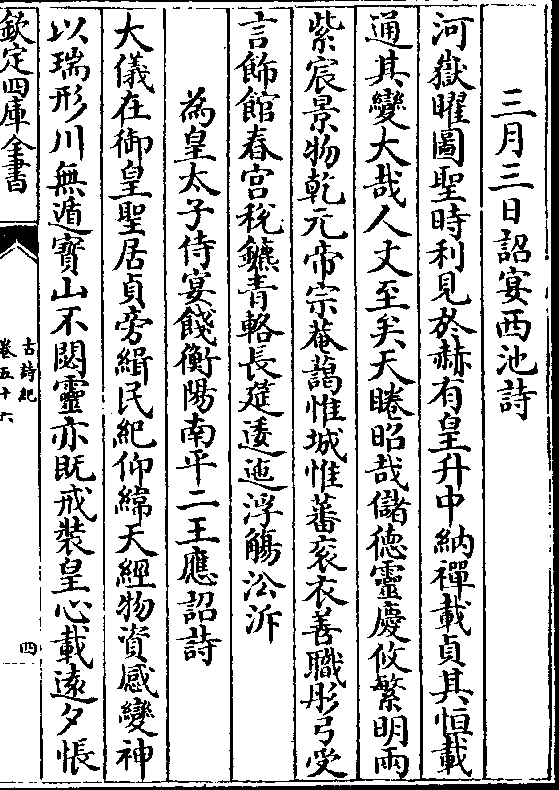 三月三日詔宴西池詩
河嶽曜圖聖時利見於赫有皇升中納禪載貞其恒載
通其變大哉人文至矣天睠昭哉儲德靈慶攸繁明兩
紫宸景物乾元帝宗菴藹惟城惟蕃衮衣善職彤弓受
言飾館春宮稅鑣青輅長筵逶迤浮觴沿泝
為皇太子侍宴餞衡陽南平二王應詔詩
大儀在御皇聖居貞旁緝民紀仰緯天經物資感變神
以瑞形川無遁寶山不閟靈亦既戒裝皇心載遠夕悵
欽定四庫全書
古詩紀
卷五十六
四